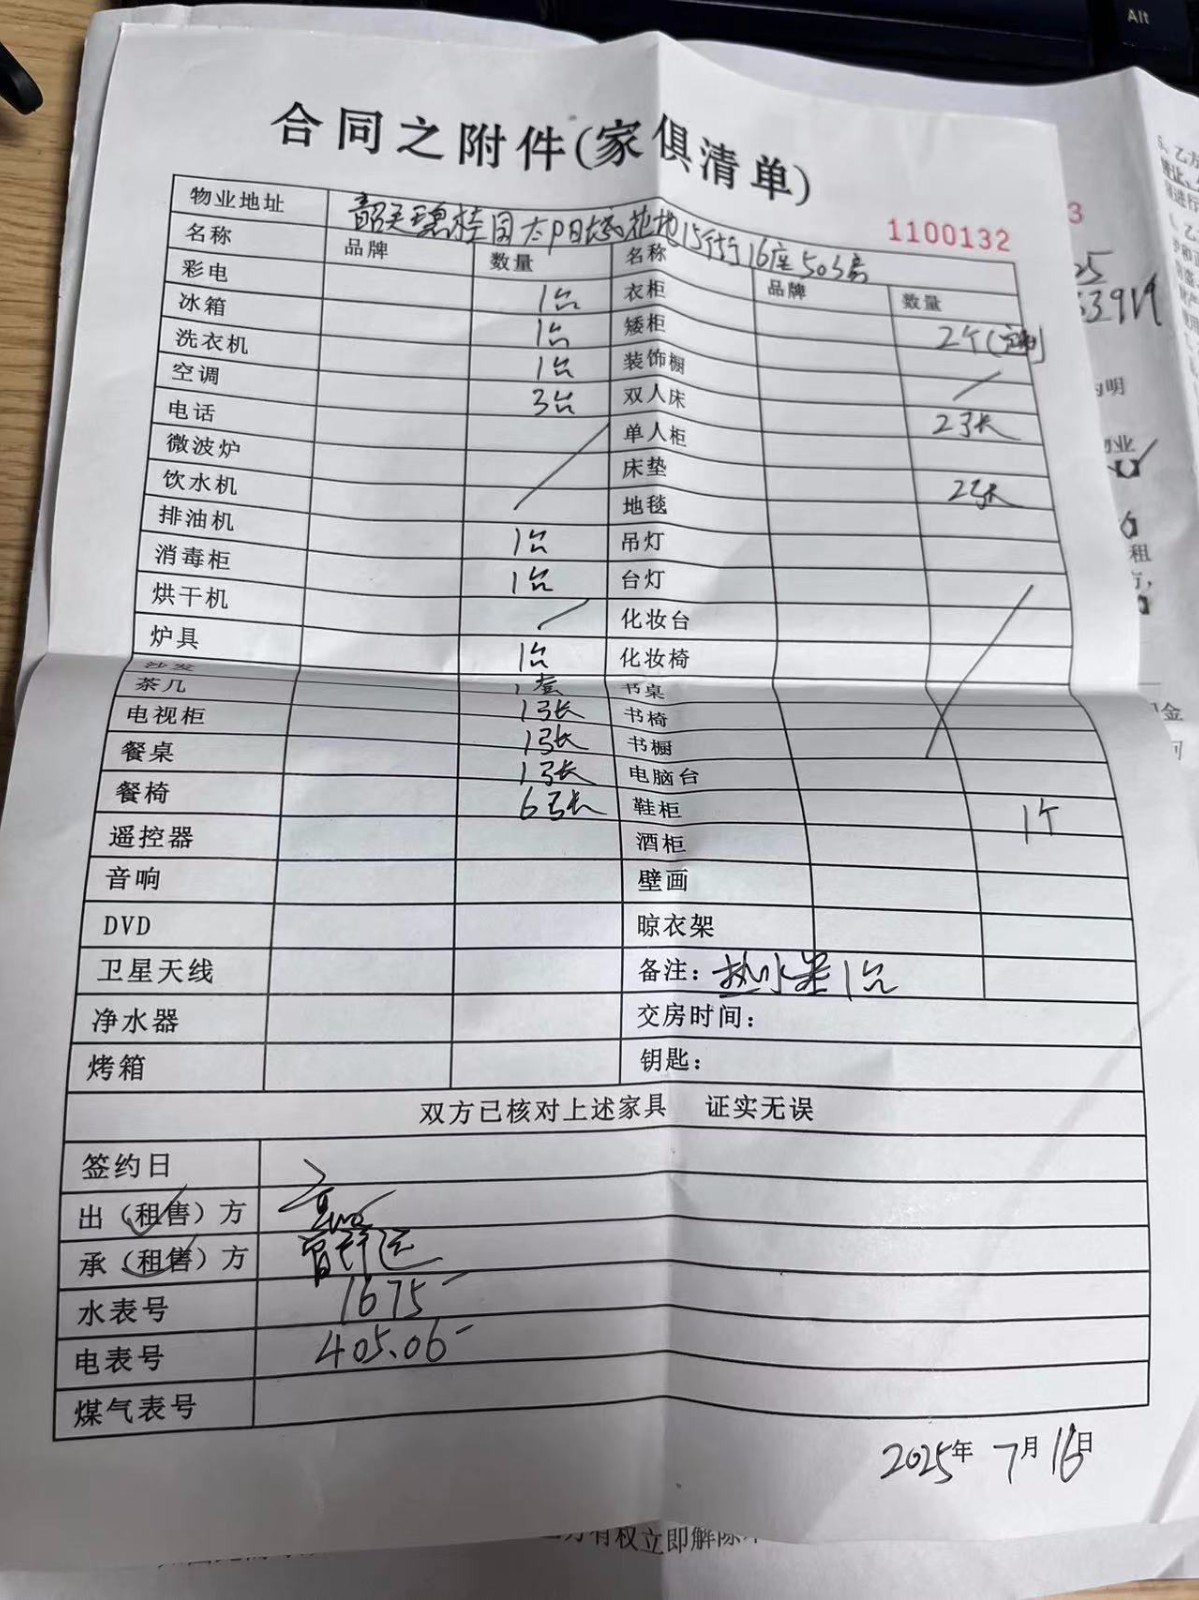 Alt
合同之附件(家俱清单)
1100132
物业地址 韶关碧桂园太阳城花地15街16座503房
名称 品牌 数量 名称 品牌 数量
彩电 1台 衣柜 2个
冰箱 1台 矮柜
洗衣机 1台 装饰橱
空调 3台 双人床 2张
电话 单人柜
微波炉 床垫 2张
饮水机 地毯
排油机 1台 吊灯
消毒柜 1台 台灯
烘干机 化妆台
炉具 1台 化妆椅
沙发 1套 书桌
茶几 1张 书椅
电视柜 1张 书橱
餐桌 1张 电脑台
餐椅 6张 鞋柜 1个
遥控器 酒柜
音响 壁画
DVD 晾衣架
卫星天线 备注：热水器1台
净水器 交房时间：
烤箱 钥匙：
双方已核对上述家具 证实无误
签约日
出（租售）方
承（租售）方
水表号 1675
电表号 405.06
煤气表号
2025年 7月 16日
有权立即解除